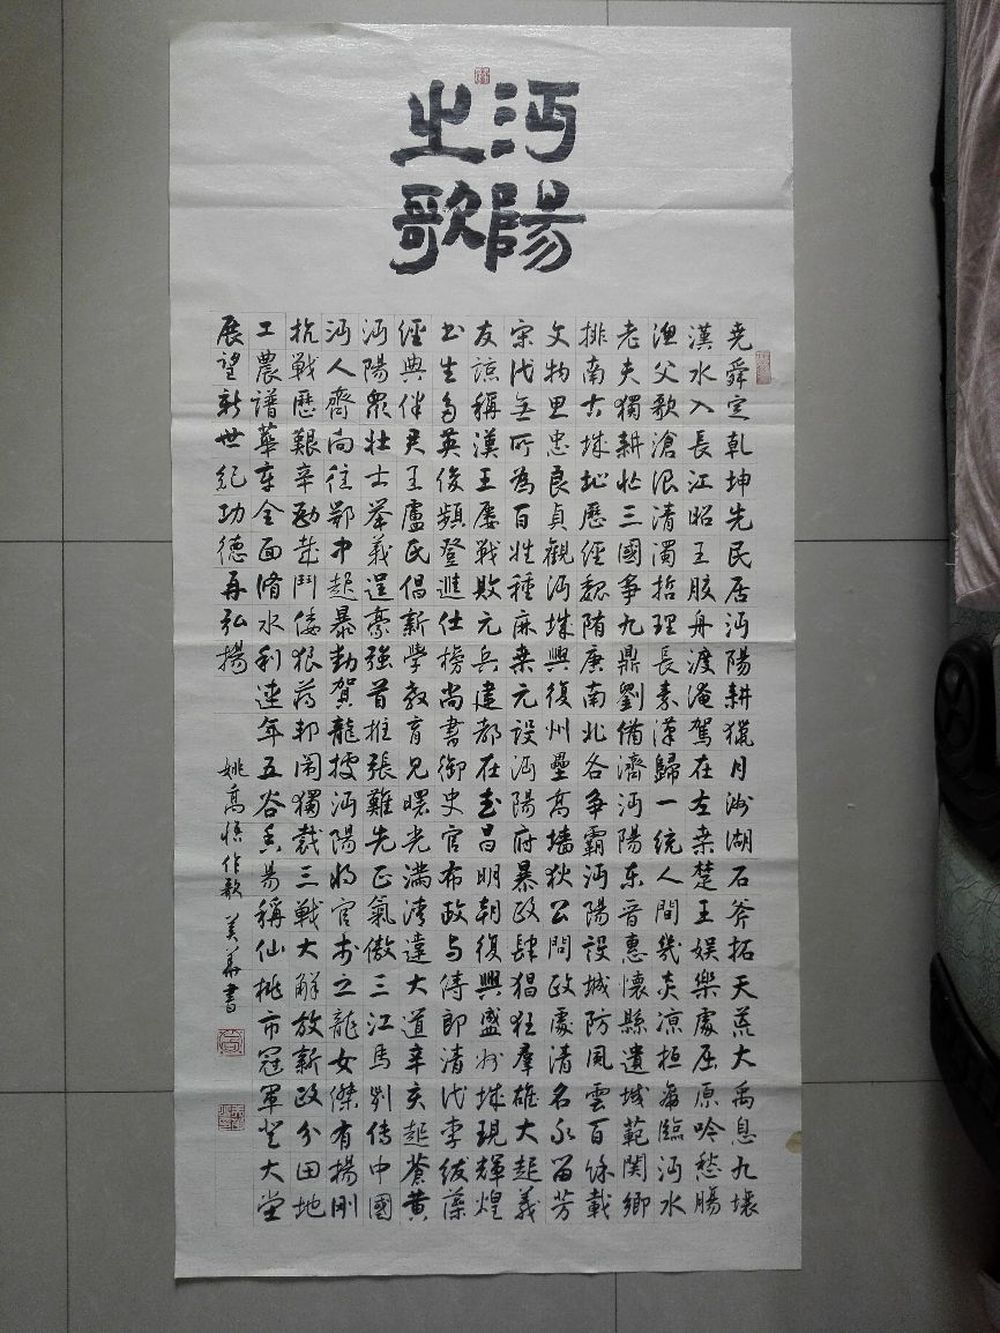 沔陽
之歌
堯舜定乾坤先民居沔陽耕獵月洲湖石斧拓天荒大禹息九壤
漢水入長江昭王膠舟渡淹駕在左桒楚王娱樂處屈原吟愁腸
漁父歌滄浪清濁哲理長秦漢歸一統人間幾炎凉桓帝臨沔水
老夫獨耕忙三國爭九鼎劉備濟沔陽东晋惠懷縣遺城範関鄉
排南古城址歷經魏随唐南北各争霸沔陽設城防風雲百餘載
文物思忠良貞觀沔城興復州壘高墻狄公問政處清名永留芳
宋代無所為百姓種麻桒元設沔陽府暴政肆猖狂羣雄大起義
友諒稱漢王屢戰敗元兵建都在武昌明朝復興盛州城現輝煌
书生多英俊頻登進仕榜尚書御史官布政与侍郎清代李绂藻
經典伴君王盧氏倡新學教育見曙光满清違大道辛亥起蒼黄
沔陽衆壮士举義逞豪强首推張難先正氣傲三江馬刘傳中國
沔人齊向往鄂中起暴動賀龍據沔陽将官市之龍女傑有楊剛
抗戰歷艱辛勐哉鬥倭狼蒋邦闹獨裁三戰大解放新政分田地
工農譜華章全面脩水利連年五谷香易稱仙桃市冠軍登大堂
展望新世纪功德再弘揚
姚高悟作歌 美華書